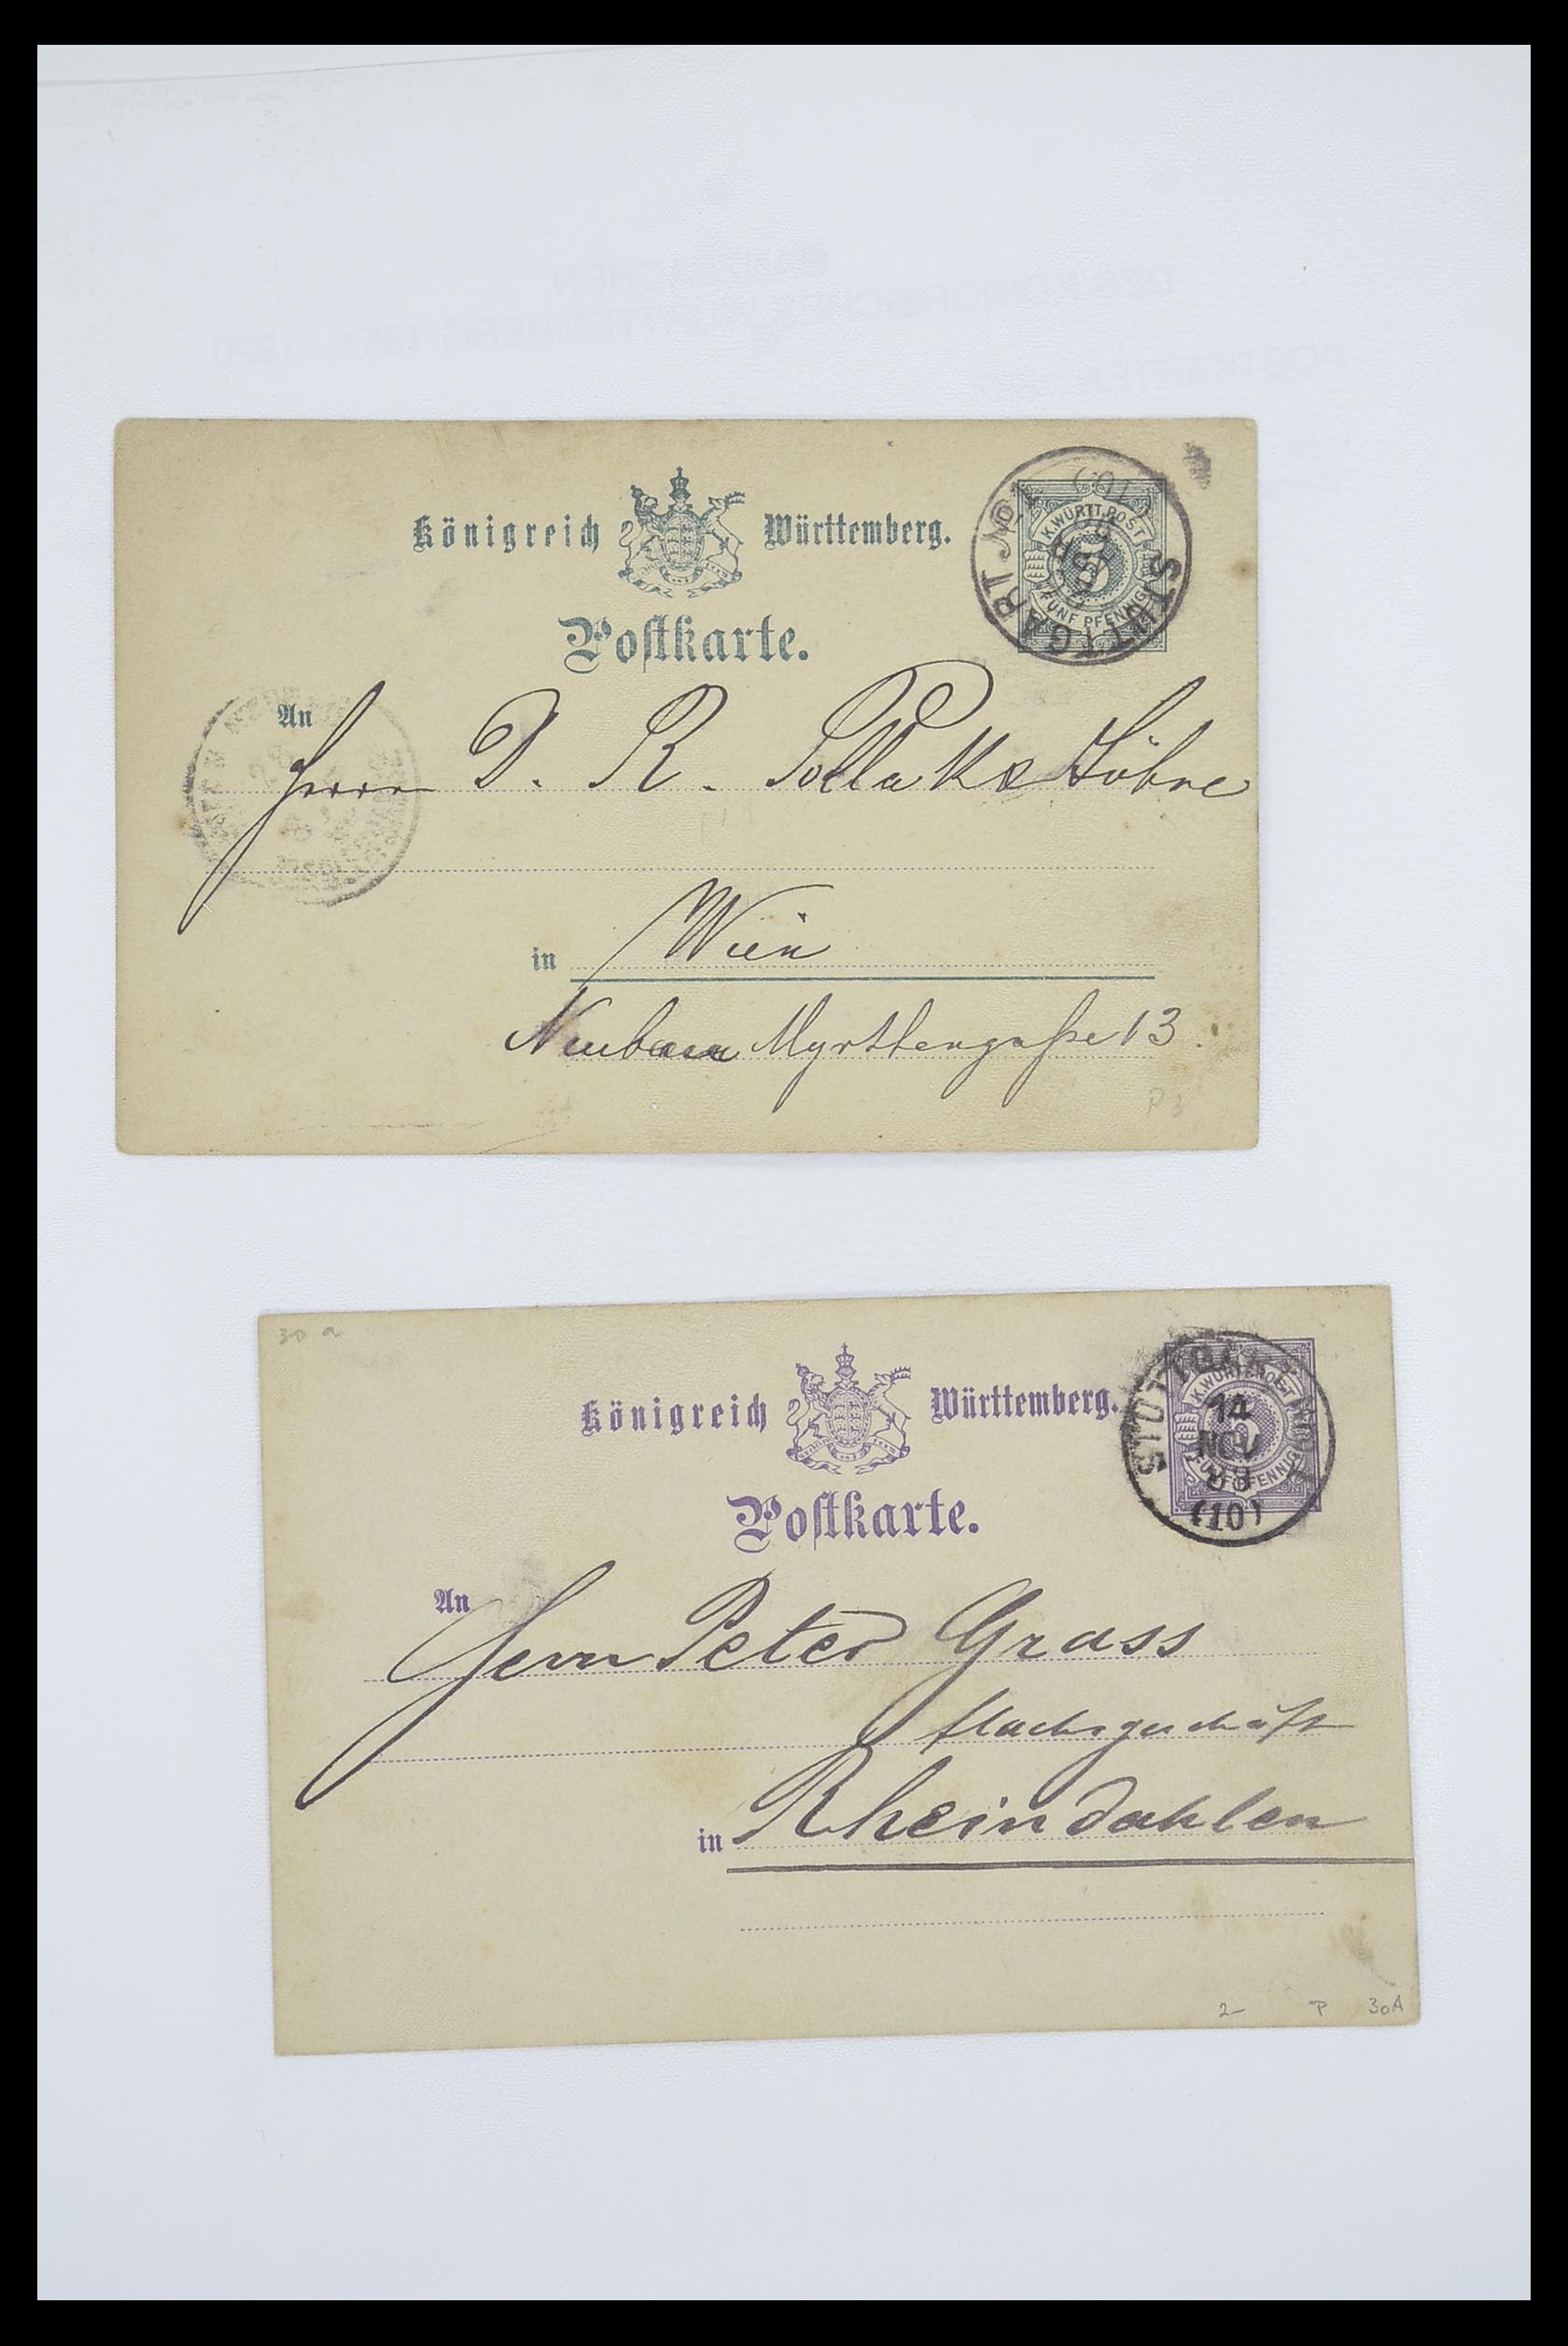 Königreich Württemberg.
Postkarte.
K. WÜRTT. POST
5
FÜNF PFENNIG
STUTTGART No 1
An
Herrn D. R. Pollaks Söhne
in Wien
Neubau Myrthengasse 13
P 3
30 a
Königreich Württemberg.
Postkarte.
K. WÜRTT. POST
5
FÜNF PFENNIG
STUTTGART
14
NOV
(10)
An
Herrn Peter Grass
Flachsgeschäft
in Rheindahlen
2- P 30A